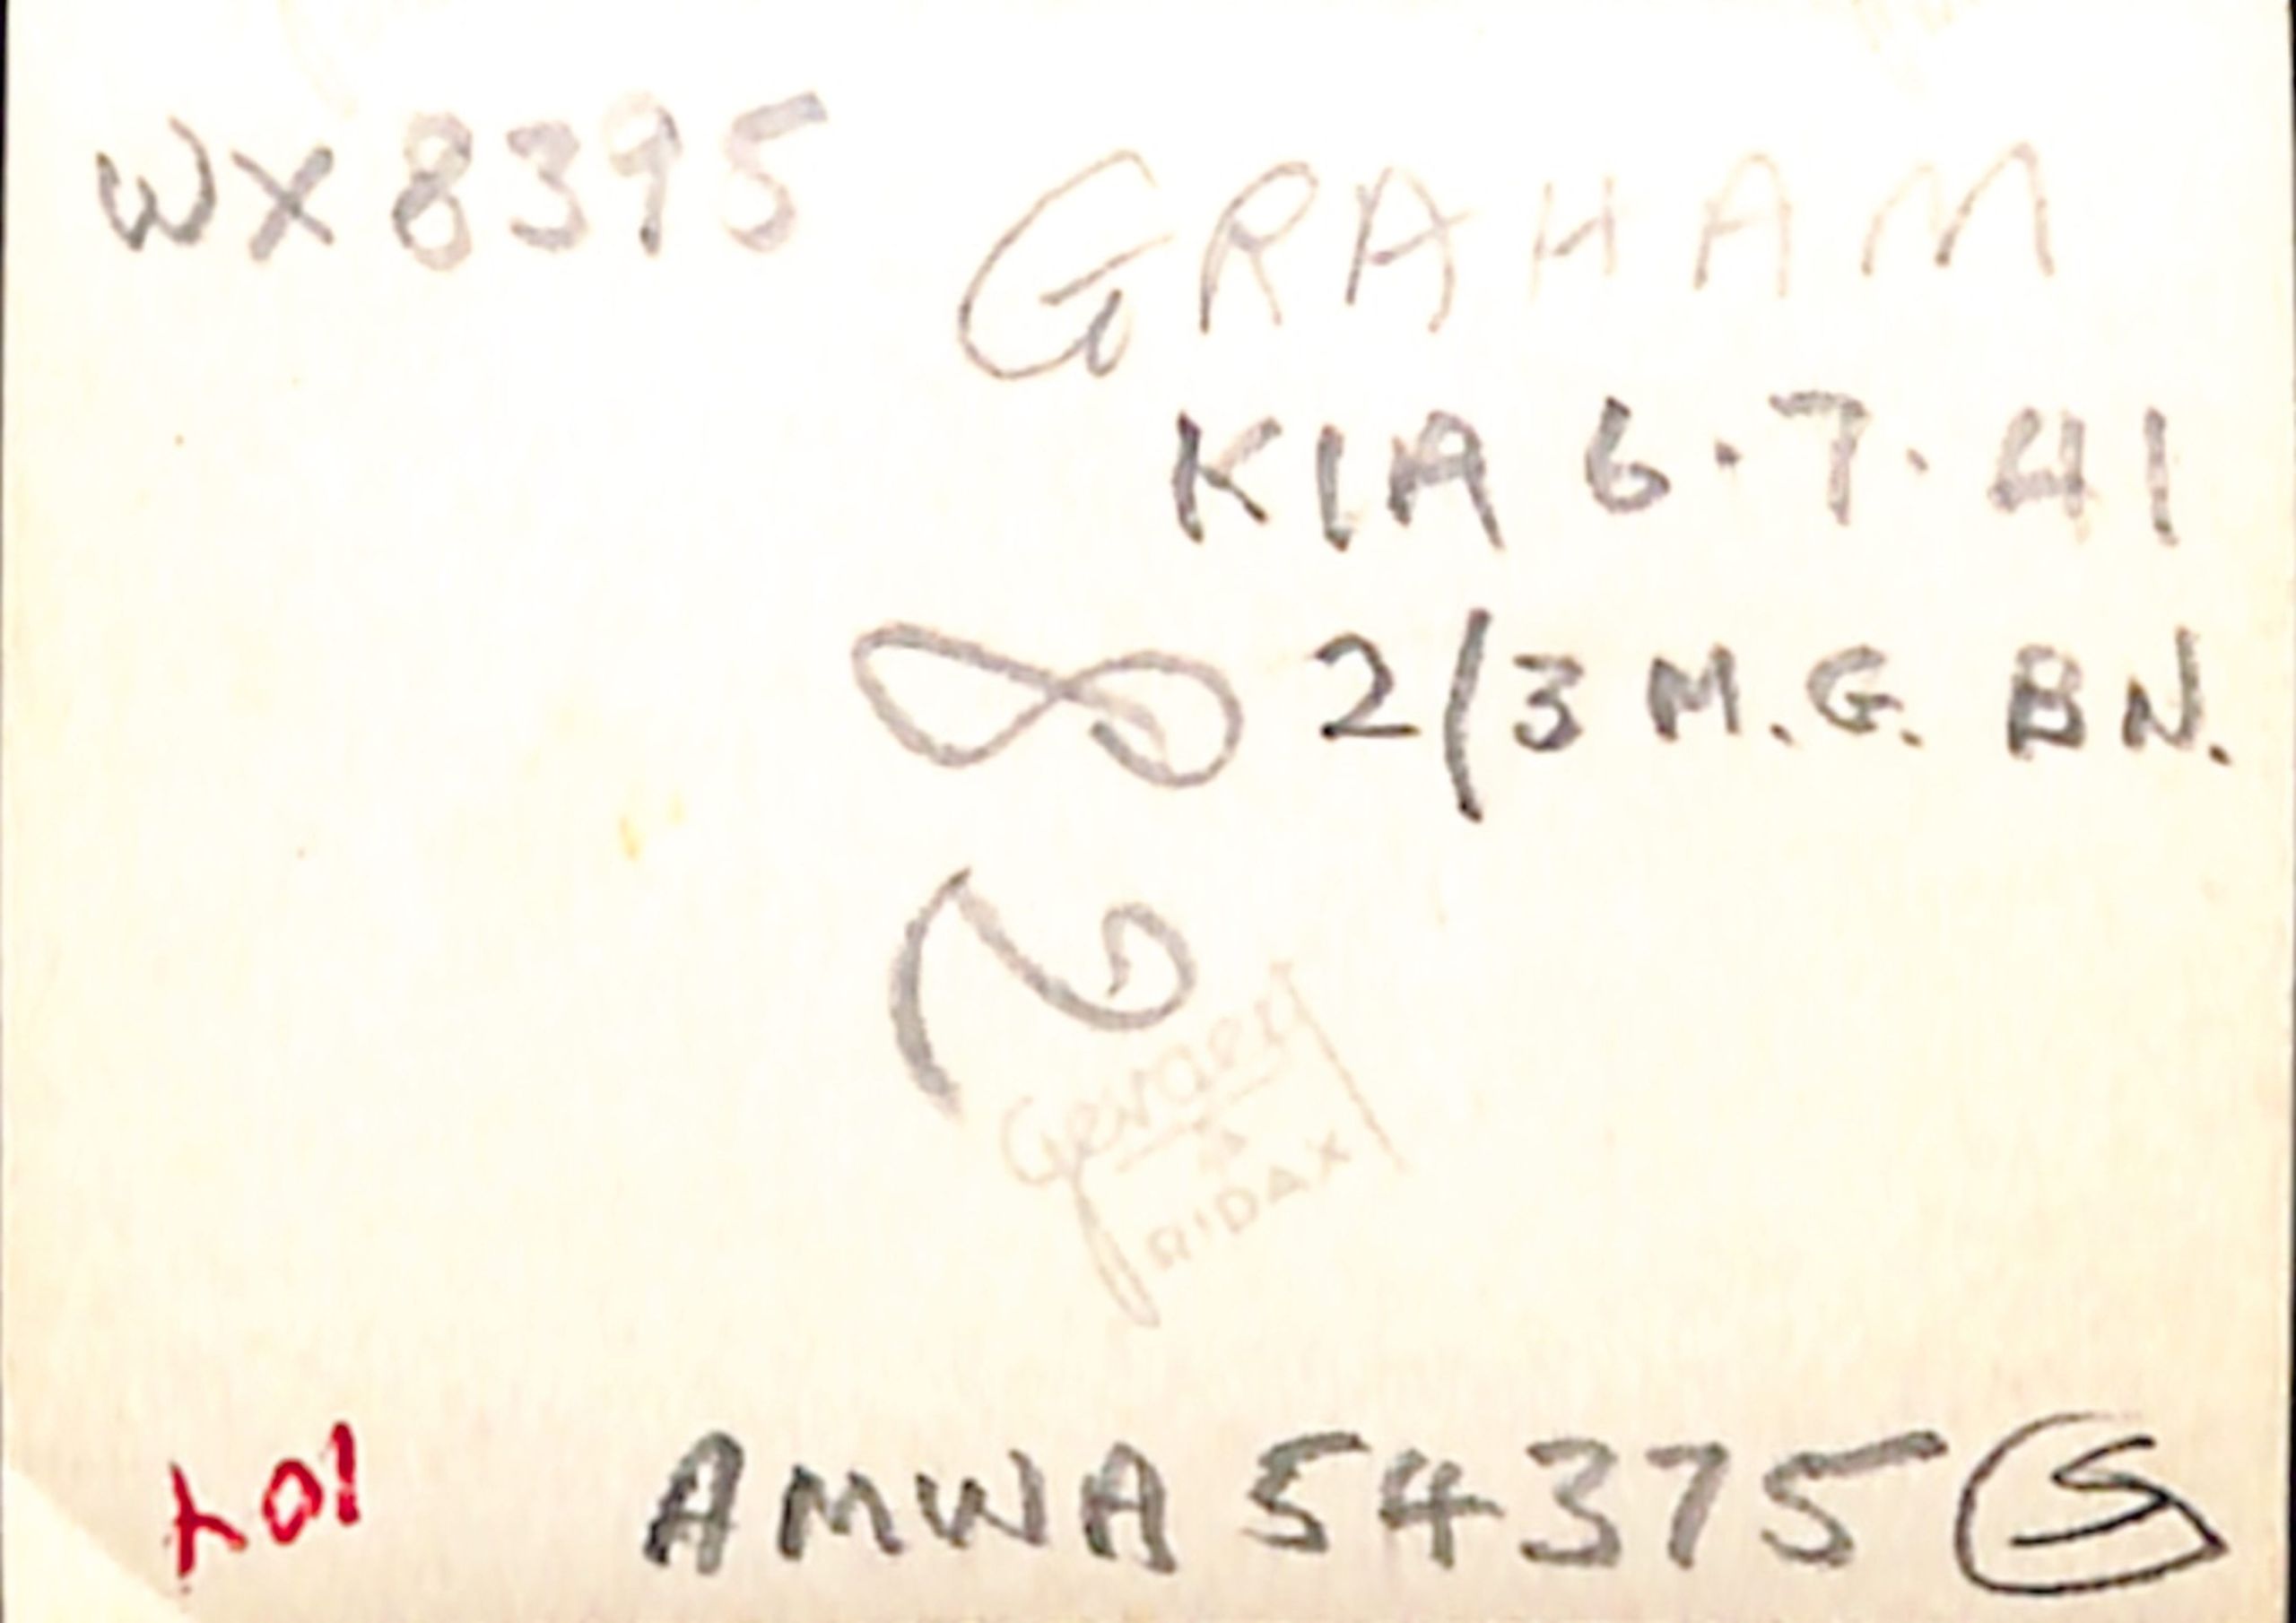 WX8395
GRAHAM
KIA 6.7.41
8 2/3 M.G. BN.
2
Gevaert
RIDAX
107
AMWA 54375 S